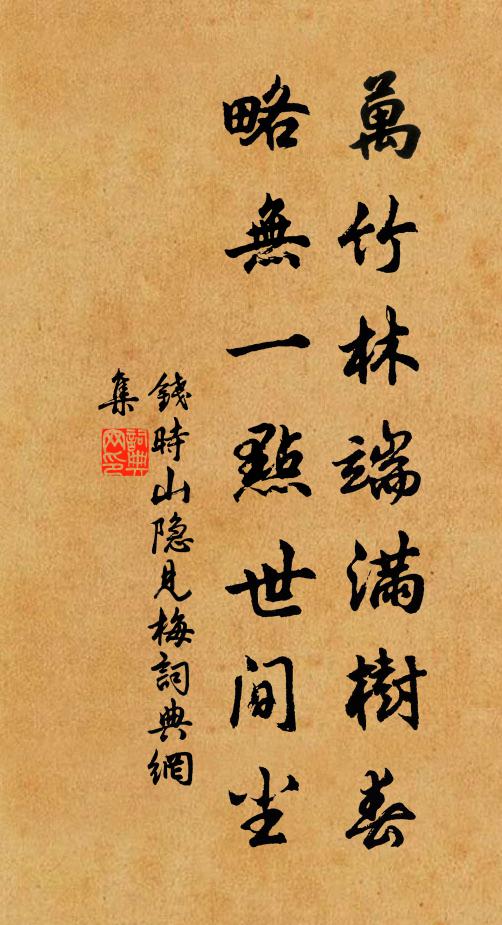 萬竹林端滿樹春
略無一點世间尘
錢時山隐見梅詞典網
集
詞典
网印